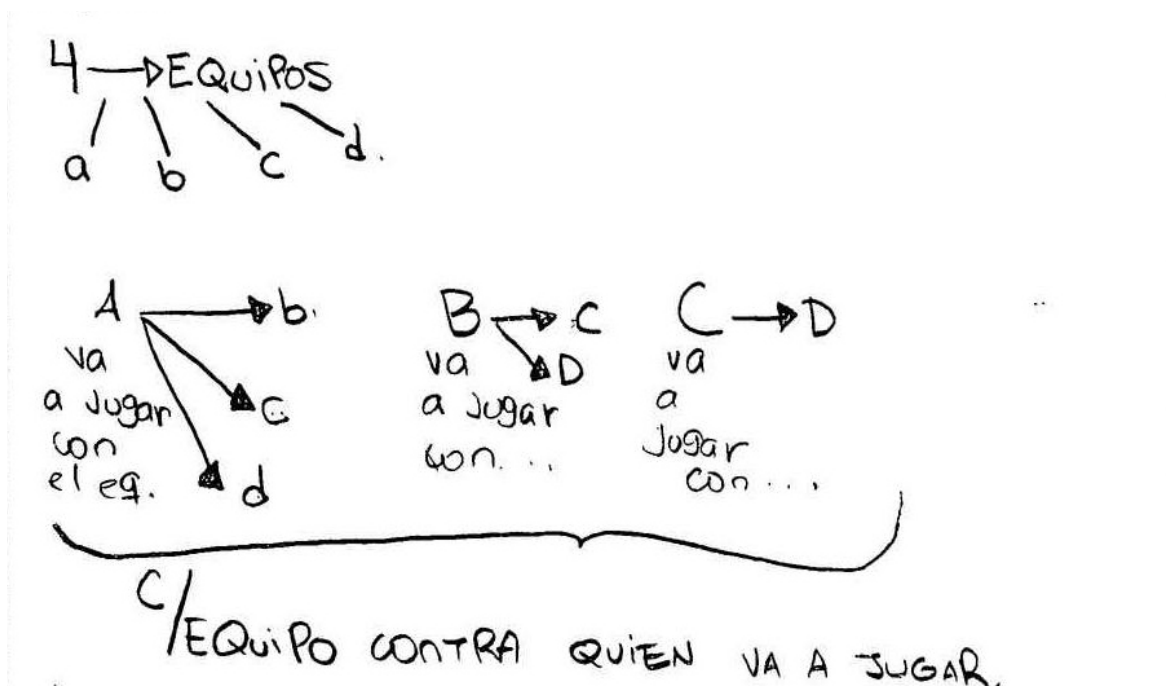 4 → EQUIPOS
a b c d.
A → b.
c
d
va
a Jugar
con
el eq.
B → C
D
va
a Jugar
con...
C → D
va
a
Jugar
con...
C/EQUIPO CONTRA QUIEN VA A JUGAR.